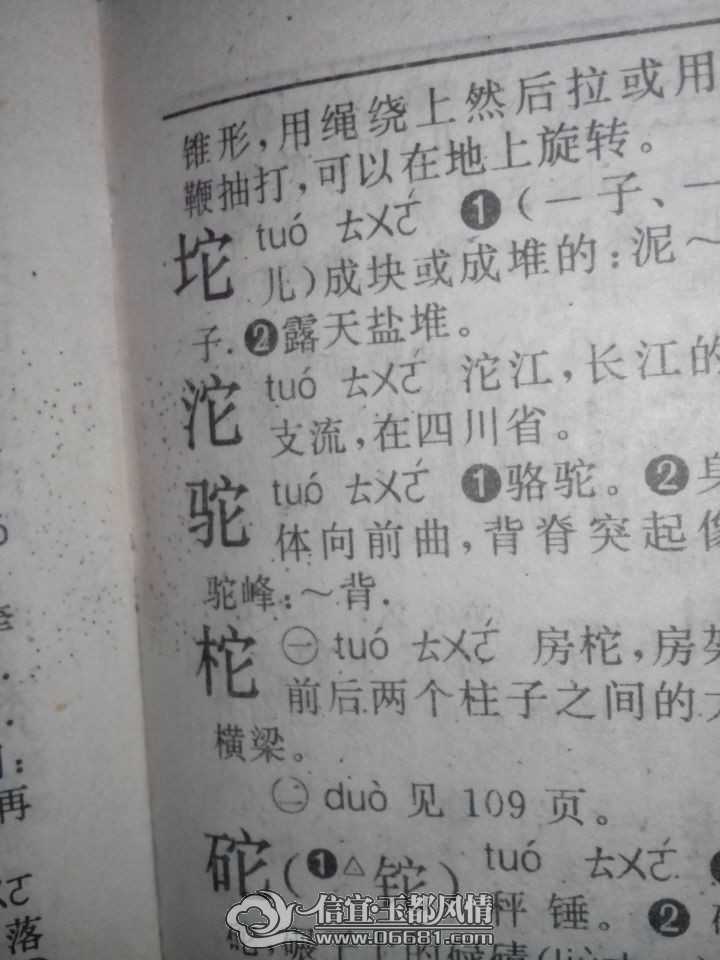 锥形,用绳绕上然后拉或用
鞭抽打,可以在地上旋转。
坨 tuó ㄊㄨㄛˊ ❶(—子、—
儿)成块或成堆的:泥～
子. ❷露天盐堆。
沱 tuó ㄊㄨㄛˊ 沱江,长江的
支流,在四川省。
驼 tuó ㄊㄨㄛˊ ❶骆驼。❷身
体向前曲,背脊突起像
驼峰:～背.
柁 ㊀ tuó ㄊㄨㄛˊ 房柁,房架
前后两个柱子之间的大
横梁。
㊁ duò 见 109 页。
砣(❶△铊) tuó ㄊㄨㄛˊ
秤锤。❷
信宜·玉都风情
www.06681.com
再
落